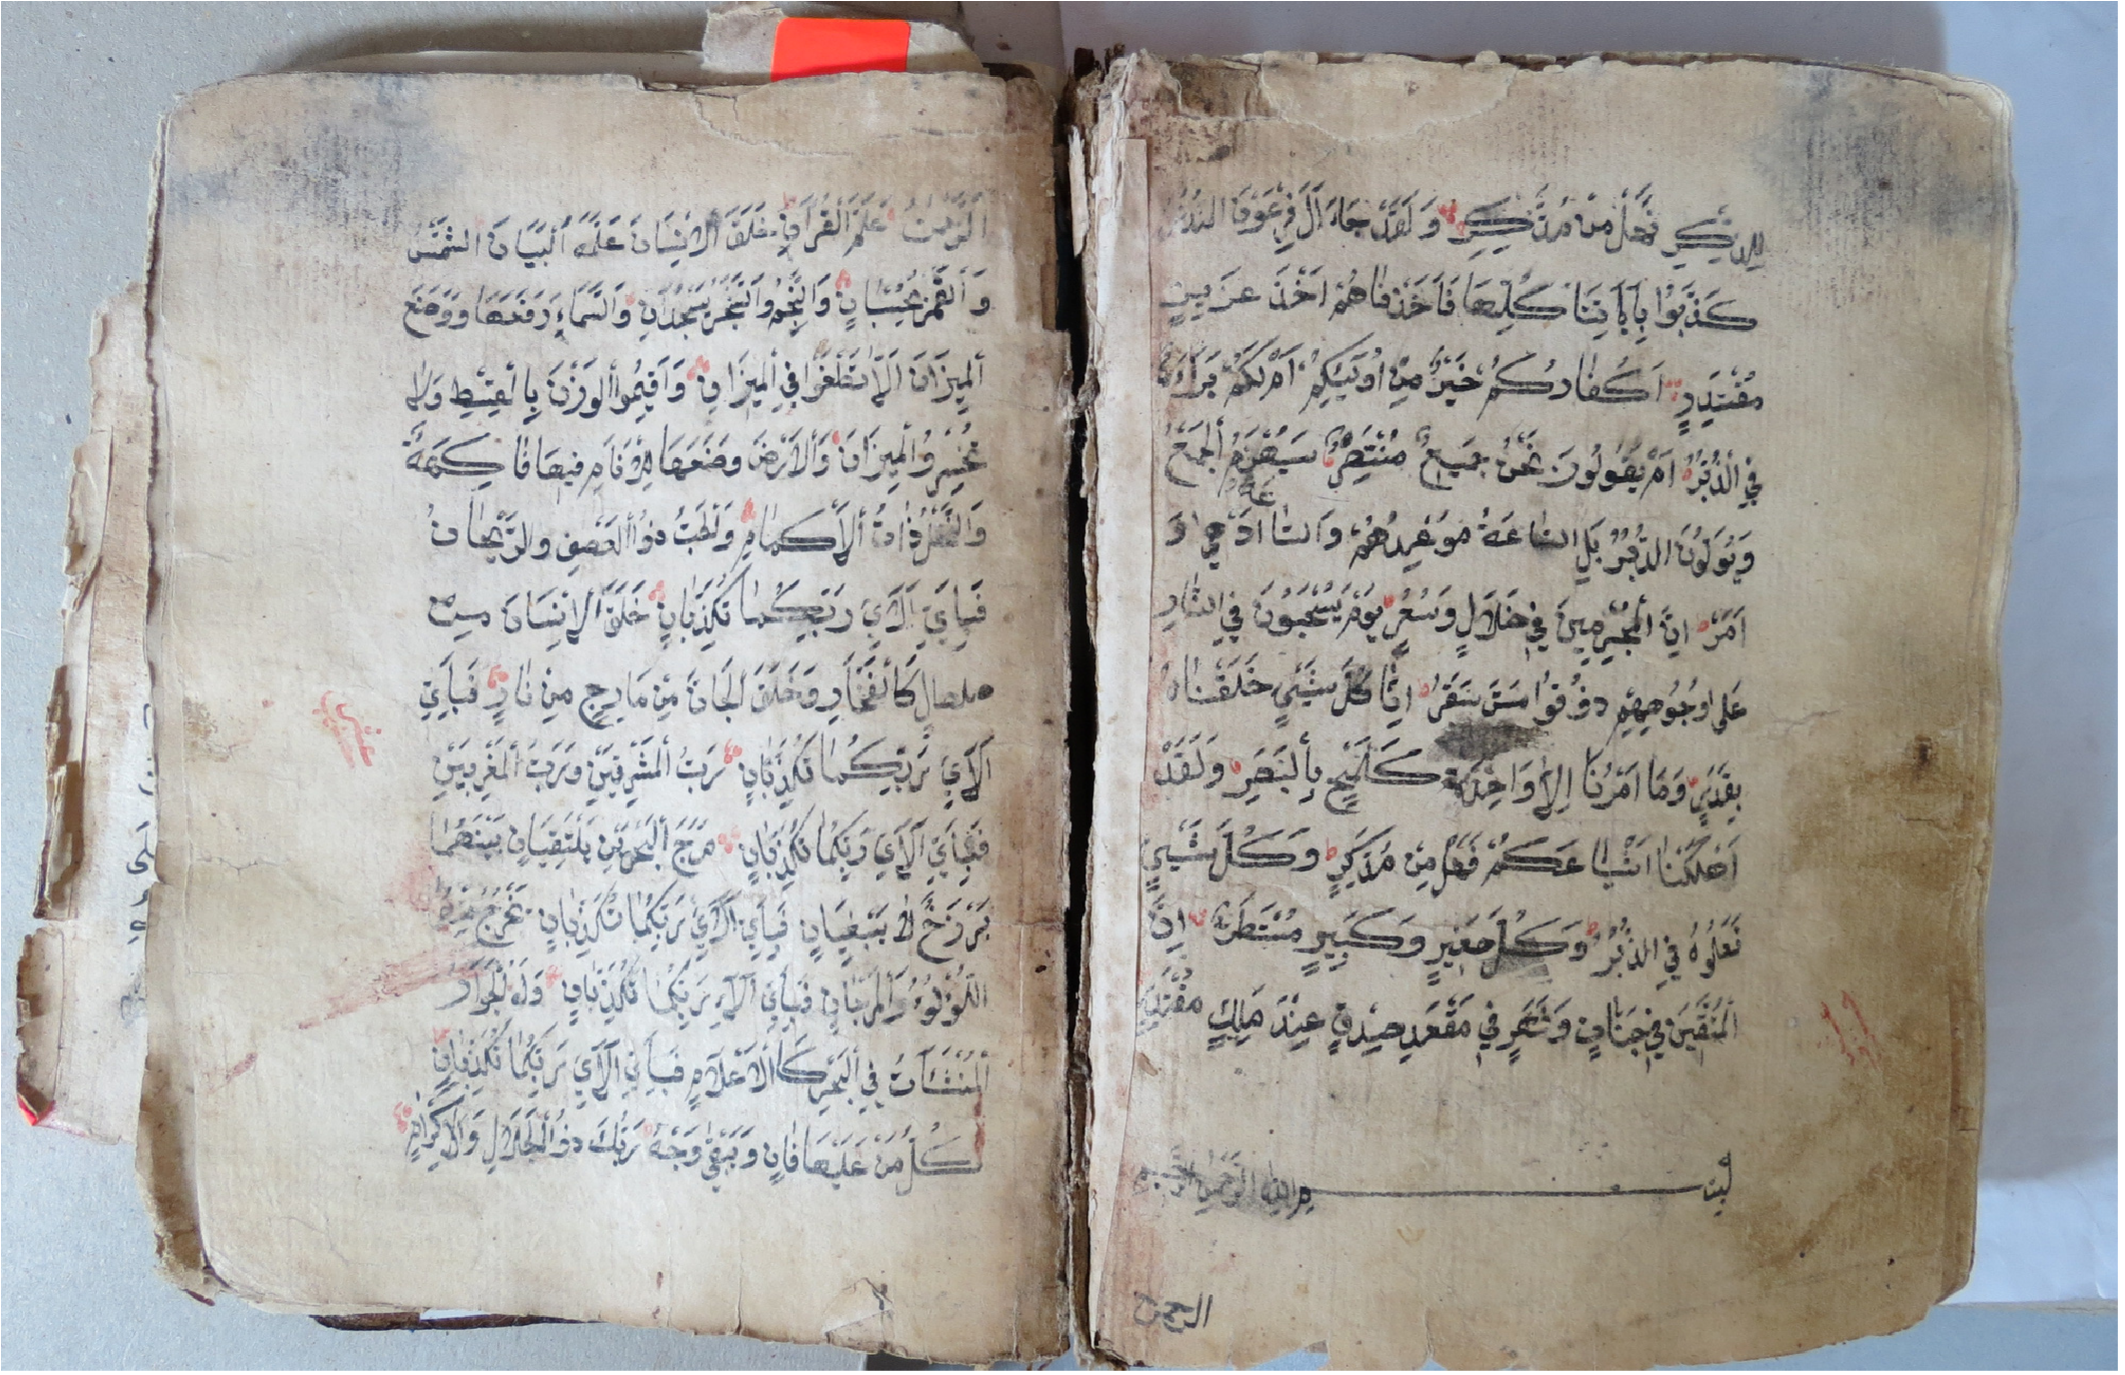 لِلذِكْرِ فَهَلْ مِنْ مُدَّكِرٍ وَلَقَدْ جَاءَ آلَ فِرْعَوْنَ النُذُرُ
كَذَّبُوا بِآيَاتِنَا كُلِّهَا فَأَخَذْنَاهُمْ أَخْذَ عَزِيزٍ
مُقْتَدِرٍ أَكُفَّارُكُمْ خَيْرٌ مِنْ أُولَئِكُمْ أَمْ لَكُمْ بَرَاءَةٌ
فِي الْزُبُرِ أَمْ يَقُولُونَ نَحْنُ جَمِيعٌ مُنْتَصِرٌ سَيُهْزَمُ الْجَمْعُ
وَيُوَلُّونَ الدُّبُرَ بَلِ السَّاعَةُ مَوْعِدُهُمْ وَالسَّاعَةُ ادْهَى وَ
اَمَرُّ اِنَّ الْمُجْرِمِينَ فِي ضَلَالٍ وَسُعُرٍ يَوْمَ يُسْحَبُونَ فِي النَّارِ
عَلَى وُجُوهِهِمْ ذُوقُوا مَسَّ سَقَرَ اِنَّا كُلَّ شَيْءٍ خَلَقْنَاهُ
بِقَدَرٍ وَمَا اَمْرُنَا اِلَّا وَاحِدَةٌ كَلَمْحٍ بِالْبَصَرِ وَلَقَدْ
اَهْلَكْنَا اَشْيَاعَكُمْ فَهَلْ مِنْ مُدَّكِرٍ وَكُلُّ شَيْءٍ
فَعَلُوهُ فِي الزُّبُرِ وَكُلُّ صَغِيرٍ وَكَبِيرٍ مُسْتَطَرٌ اِنَّ
الْمُتَّقِينَ فِي جَنَّاتٍ وَنَهَرٍ فِي مَقْعَدِ صِدْقٍ عِنْدَ مَلِيكٍ مُقْتَدِرٍ
بسم الله الرحمن الرحيم
الرحمن
الَرَّحْمَنُ عَلَّمَ الْقُرْآنَ خَلَقَ الْاِنْسَانَ عَلَّمَهُ الْبَيَانَ الشَّمْسُ
وَالْقَمَرُ بِحُسْبَانٍ وَالنَّجْمُ وَالشَّجَرُ يَسْجُدَانِ وَالسَّمَاءَ رَفَعَهَا وَوَضَعَ
الْمِيزَانَ اَلَّا تَطْغَوْا فِي الْمِيزَانِ وَاَقِيمُوا الْوَزْنَ بِالْقِسْطِ وَلَا
تُخْسِرُوا الْمِيزَانَ وَالْاَرْضَ وَضَعَهَا لِلْاَنَامِ فِيهَا فَاكِهَةٌ
وَالنَّخْلُ ذَاتُ الْاَكْمَامِ وَلْحَبُّ ذُوا الْعَصْفِ وَالرَّيْحَانُ
فَبِاَيِّ اَلَايِ رَبِّكُمَا تُكَذِّبَانِ خَلَقَ الْاِنْسَانَ مِنْ
صلصالٍ كَالْفَخَّارِ وَخَلَقَ الْجَانَّ مِنْ مَارِجٍ مِنْ نَارٍ فَبِاَيِّ
اَلَايِ رَبِّكُمَا تُكَذِّبَانِ رَبُّ الْمَشْرِقَيْنِ وَرَبُّ الْمَغْرِبَيْنِ
فَبِاَيِّ اَلَايِ رَبِّكُمَا تُكَذِّبَانِ مَرَجَ الْبَحْرَيْنِ يَلْتَقِيَانِ بَيْنَهُمَا
بَرْزَخٌ لَا يَبْغِيَانِ فَبِاَيِّ اَلَايِ رَبِّكُمَا تُكَذِّبَانِ يَخْرُجُ مِنْهُمَا
اللُّؤْلُؤُ وَالْمَرْجَانُ فَبِاَيِّ اَلَاءِ رَبِّكُمَا تُكَذِّبَانِ وَلَهُ الْجَوَارُ
الْمُنْشَآتُ فِي الْبَحْرِ كَالْاَعْلَامِ فَبِاَيِّ اَلَايِ رَبِّكُمَا تُكَذِّبَانِ
كُلُّ مَنْ عَلَيْهَا فَانٍ وَيَبْقَى وَجْهُ رَبِّكَ ذُو الْجَلَالِ وَالْاِكْرَامِ